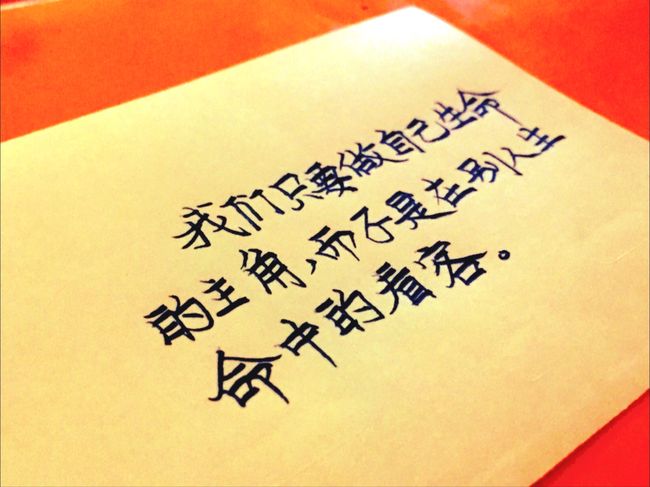 我们只要做自己生命
的主角、而不是在别人生
命中的看客。